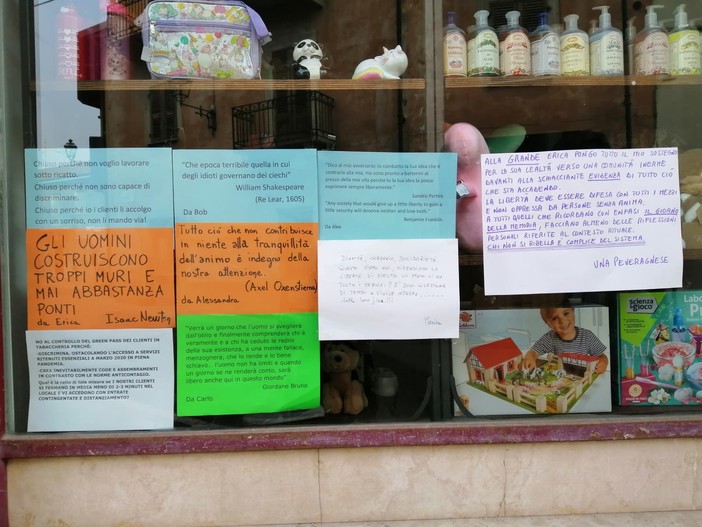 Chiuso perché non voglio lavorare
sotto ricatto.
Chiuso perché non sono capace di
discriminare.
Chiuso perché io i clienti li accolgo
con un sorriso, non li mando via!
GLI UOMINI
COSTRUISCONO
TROPPI MURI E
MAI ABBASTANZA
PONTI
da Erica Isaac Newton
NO AL CONTROLLO DEL GREEN PASS DEI CLIENTI IN
TABACCHERIA PERCHÉ:
-DISCRIMINA, OSTACOLANDO L'ACCESSO A SERVIZI
RITENUTI ESSENZIALI A MARZO 2020 IN PIENA
PANDEMIA.
-CREA INEVITABILMENTE CODE E ASSEMBRAMENTI
IN CONTRASTO CON LE NORME ANTICONTAGIO.
Qual è la ratio di tale misura se I NOSTRI CLIENTI
SI FERMANO IN MEDIA MENO DI 2-3 MINUTI NEL
LOCALE E VI ACCEDONO CON ENTRATE
CONTINGENTATE E DISTANZIAMENTO?
"Che epoca terribile quella in cui
degli idioti governano dei ciechi"
William Shakespeare
(Re Lear, 1605)
Da Bob
Tutto ciò che non contribuisce
in niente alla tranquillità
dell'animo è indegno della
nostra attenzione.
(Axel Oxenstierna)
da Alessandra
"Verrà un giorno che l'uomo si sveglierà
dall'oblio e finalmente comprenderà chi è
veramente e a chi ha ceduto le redini
della sua esistenza, a una mente fallace,
menzognera, che lo rende e lo tiene
schiavo... l'uomo non ha limiti e quando
un giorno se ne renderà conto, sarà
libero anche qui in questo mondo"
Giordano Bruno
Da Carlo
"Dico ai mio avversario: io combatto la tua idea che è
contraria alla mia, ma sono pronto a battermi al
prezzo della mia vita perché tu la tua idea la possa
esprimere sempre liberamente."
Sandro Pertini
"Any society that would give up a little liberty to gain a
little security will deserve neither and lose both."
Benjamin Franklin
Da Alex
DIGNITÀ, CORAGGIO, SOLIDARIETÀ.
ALLA GRANDE ERICA PONGO TUTTO IL MIO SOSTEGNO
PER LA SUA LEALTÀ VERSO UNA COMUNITÀ INERME
DAVANTI ALLA SCHIACCIANTE EVIDENZA DI TUTTO CIÒ
CHE STA ACCADENDO.
LA LIBERTÀ DEVE ESSERE DIFESA CON TUTTI I MEZZI
E NON OPPRESSA DA PERSONE SENZA ANIMA.
A TUTTI QUELLI CHE RICORDANO CON ENFASI IL GIORNO
DELLA MEMORIA, FACCIANO ALMENO DELLE RIFLESSIONI
PERSONALI RIFERITE AL CONTESTO ATTUALE.
CHI NON SI RIBELLA È COMPLICE DEL SISTEMA
UNA PEVERAGNESE
scienza
gioco